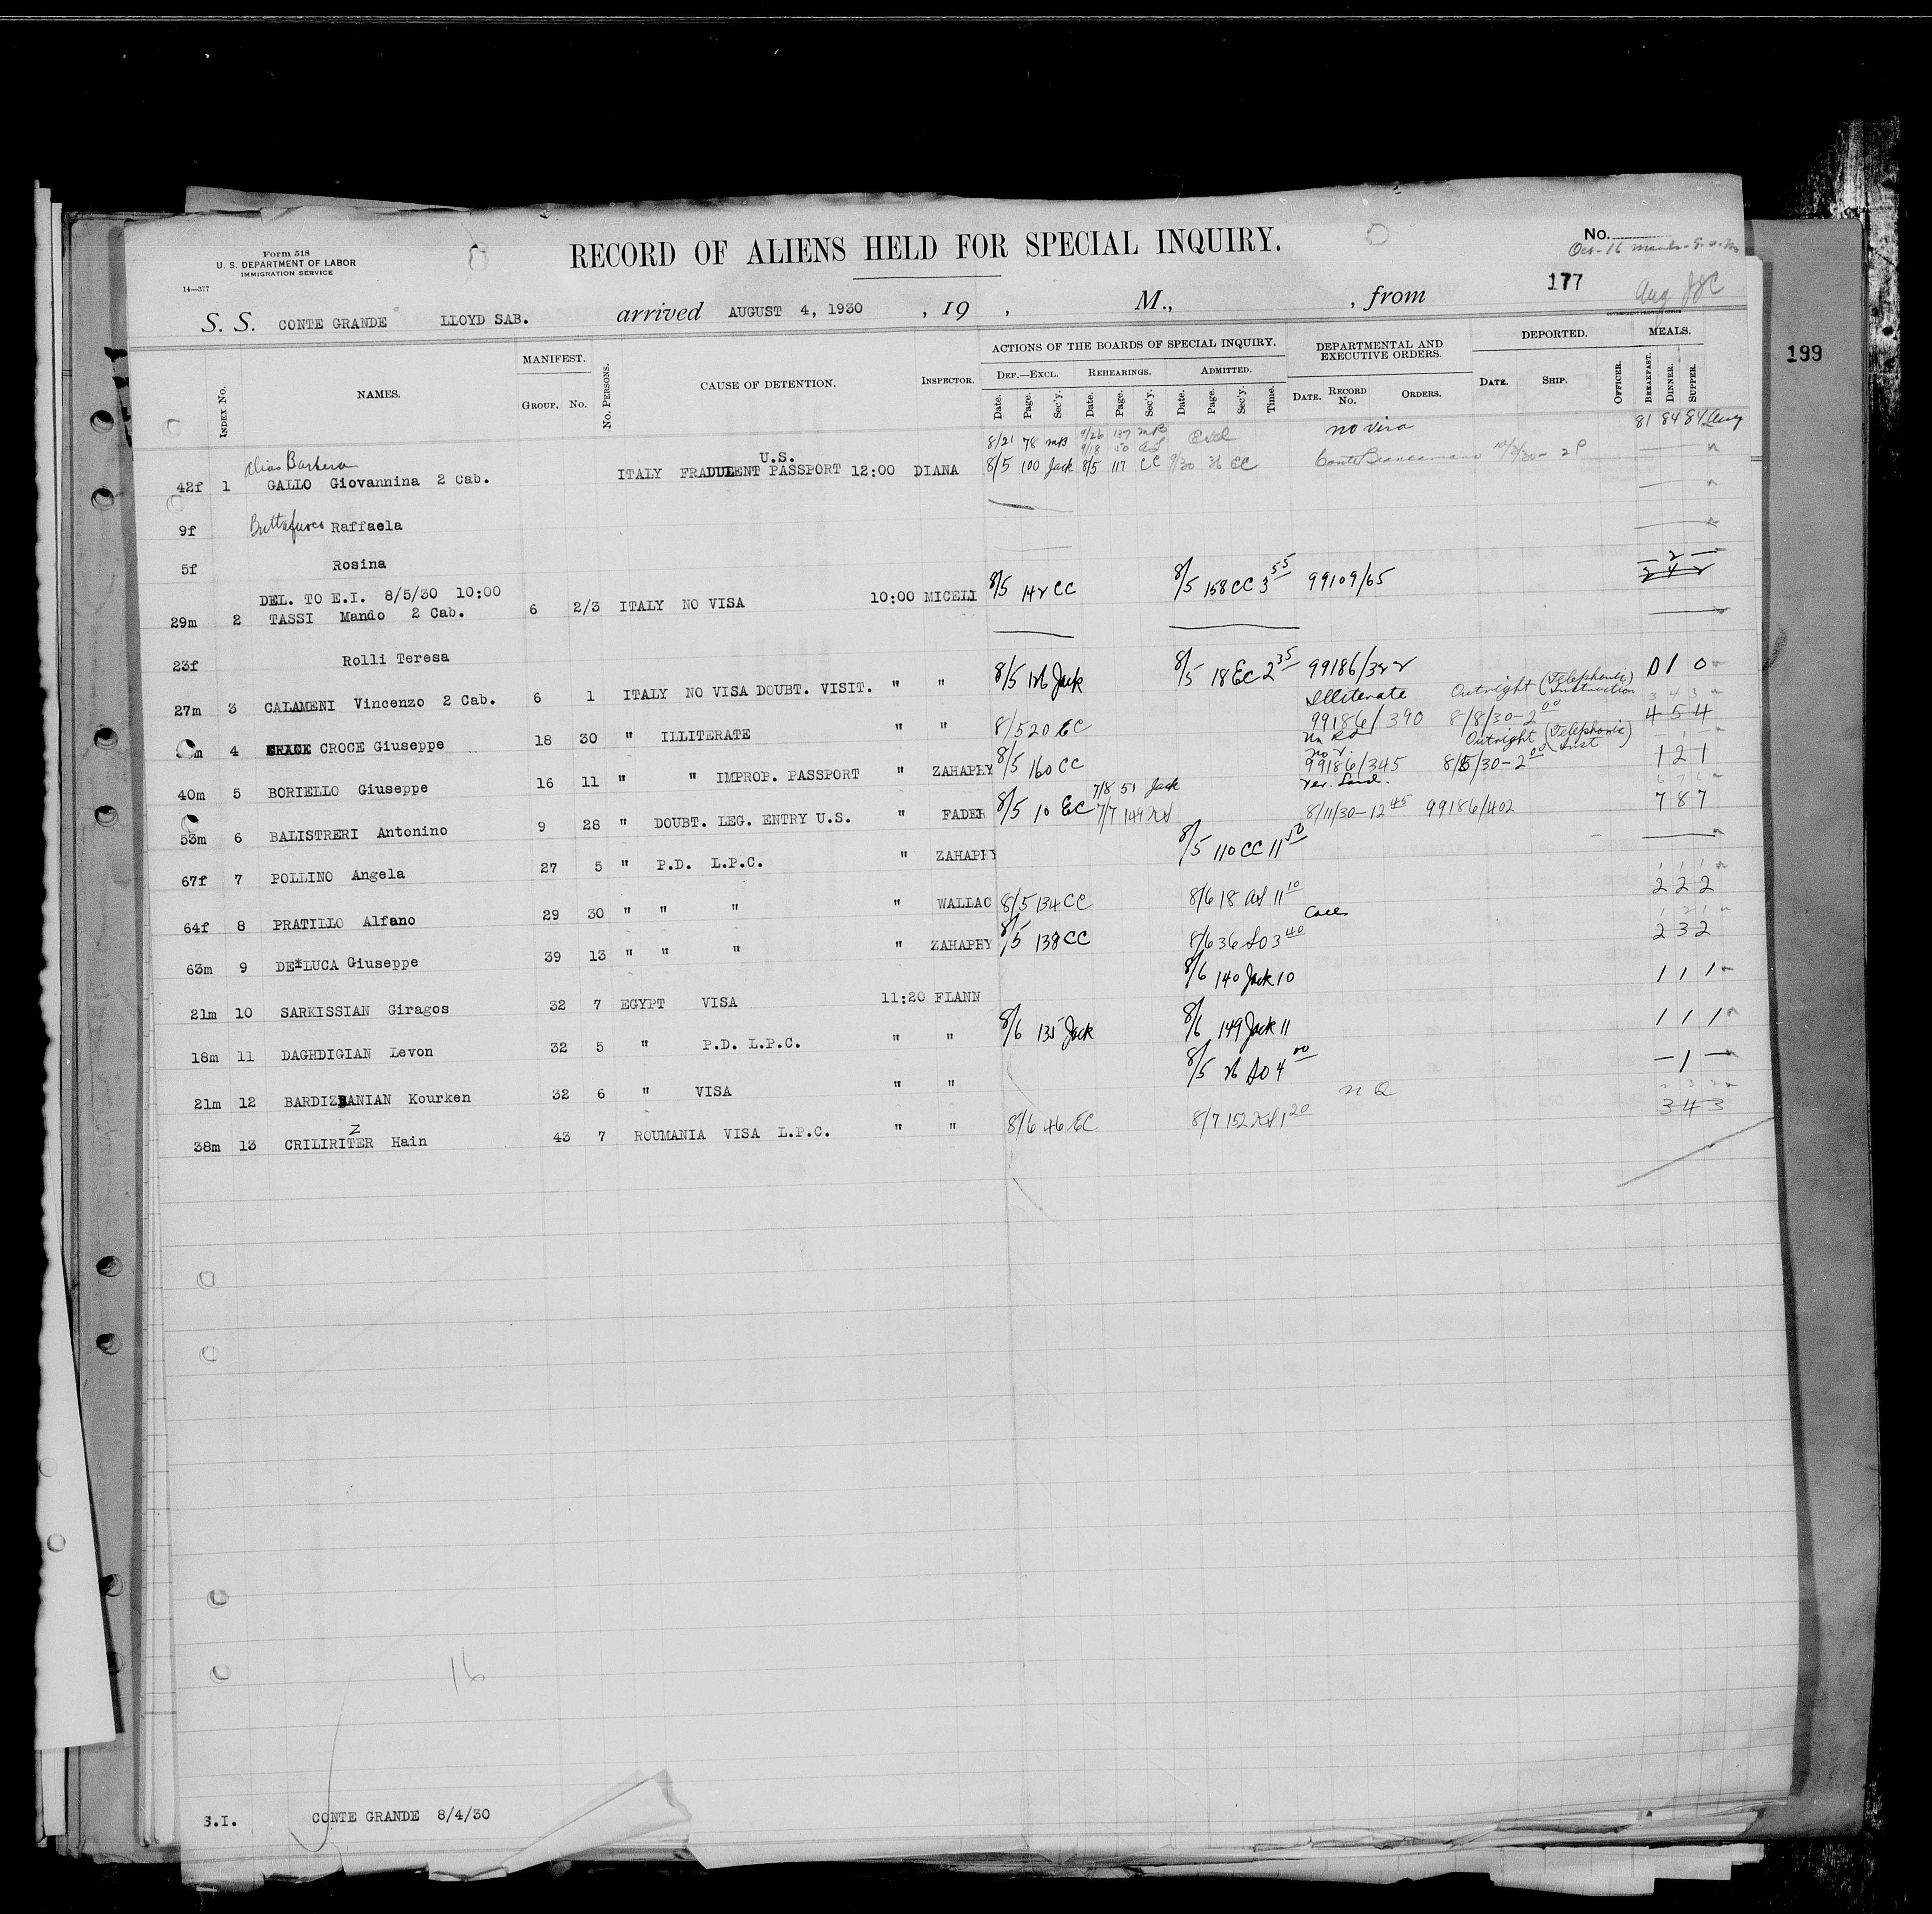 Form 518
U. S. DEPARTMENT OF LABOR
IMMIGRATION SERVICE
14—377
8
RECORD OF ALIENS HELD FOR SPECIAL INQUIRY.
No.
177
Aug
199
S. S. CONTE GRANDE LLOYD SAB. arrived AUGUST 4, 1930 , 19 , M., , from
GOVERNMENT PRINTING OFFICE
INDEX No. NAMES. MANIFEST. GROUP. NO. NO. PERSONS. CAUSE OF DETENTION. INSPECTOR. ACTIONS OF THE BOARDS OF SPECIAL INQUIRY. DEF.—EXCL. REHEARINGS. ADMITTED. DEPARTMENTAL AND EXECUTIVE ORDERS. DEPORTED. MEALS.
Date. Page. Sec'y. Date. Page. Sec'y. Date. Page. Sec'y. Time. DATE. RECORD NO. ORDERS. DATE. SHIP. OFFICER. BREAKFAST. DINNER. SUPPER.
8/21 78 mB 9/26 137 mB no visa 81 84 84 Aug
9/18 50
alias Barbera U.S.
42f 1 GALLO Giovannina 2 Cab. ITALY FRAUDULENT PASSPORT 12:00 DIANA 8/5 100 Jack 8/5 117 CC 9/30 36 EC
9f Raffaela
5f Rosina
DEL. TO E.I. 8/5/30 10:00
29m 2 TASSI Mando 2 Cab. 6 2/3 ITALY NO VISA 10:00 MICELI 8/5 142 CC 8/5 158 CC 3 55 99109/65 — 2 —
23f Rolli Teresa
27m 3 CALAMENI Vincenzo 2 Cab. 6 1 ITALY NO VISA DOUBT. VISIT. " " 8/5 126 Jack 8/5 18 EC 2 35 99186/322 0 1 0
Illiterate Outright (Telephonic) Instruction
m 4 CROCE Giuseppe 18 30 " ILLITERATE " " 8/5 20 EC 99186/390 8/8/30-2 00 4 5 4
Outright (Telephonic) Inst
40m 5 BORIELLO Giuseppe 16 11 " " IMPROP. PASSPORT " ZAHAPHY 8/5 160 CC 99186/345 8/5/30-2 00 1 2 1
7/8 51 Jack
53m 6 BALISTRERI Antonino 9 28 " DOUBT. LEG. ENTRY U.S. " FADER 8/5 10 EC 7/7 149 8/11/30-12 45 99186/402 7 8 7
67f 7 POLLINO Angela 27 5 " P.D. L.P.C. " ZAHAPHY 8/5 110 CC 11
64f 8 PRATILLO Alfano 29 30 " " " " WALLAC 8/5 134 CC 8/6 18 11 10 2 2 2
63m 9 DE*LUCA Giuseppe 39 13 " " " " ZAHAPHY 8/5 138 CC 8/6 36 3 40 2 3 2
21m 10 SARKISSIAN Giragos 32 7 EGYPT VISA 11:20 FLANN 8/6 140 Jack 10 1 1 1
18m 11 DAGHDIGIAN Levon 32 5 " P.D. L.P.C. " " 8/6 135 Jack 8/6 149 Jack 11 1 1 1
21m 12 BARDIZBANIAN Kourken 32 6 " VISA " " 8/5 26 4 00 — 1 —
Z
38m 13 CRILIRITER Hain 43 7 ROUMANIA VISA L.P.C. " " 8/6 46 EC 8/7 152 1 20 3 4 3
16
S.I. CONTE GRANDE 8/4/30